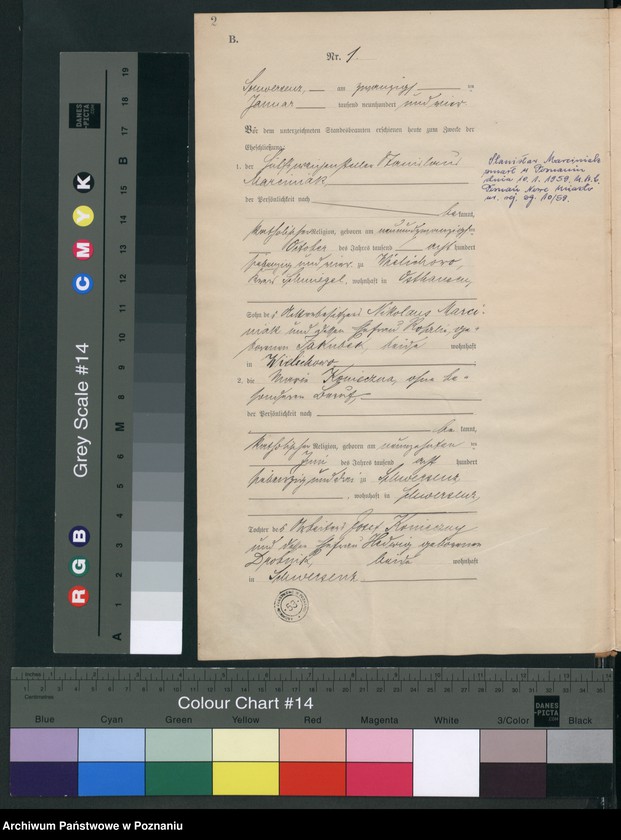 2
B.
Nr. 1.
Schwersenz, am zwanzigsten
Januar tausend neunhundert und vier.
Vor dem unterzeichneten Standesbeamten erschienen heute zum Zwecke der
Eheschließung:
1. der Hülfsweichensteller Stanislaus
Marciniak
der Persönlichkeit nach
be kannt,
katholischer Religion, geboren am neunundzwanzigsten
October des Jahres tausend acht hundert
siebenzig und vier zu Wielichowo,
Kreis Schmiegel, wohnhaft in
Sohn des Ackerbesitzers Nikolaus Marci-
niak und dessen Ehefrau Rosalie ge-
borenen Jakubek, beide wohnhaft
in Wielichowo
2. die Maria Konieczna, ohne be-
sonderen Beruf,
der Persönlichkeit nach
be kannt,
katholischer Religion, geboren am neunzehnten
Juni des Jahres tausend acht hundert
siebenzig und drei zu Schwersenz
, wohnhaft in Schwersenz,
Tochter des Arbeiters Josef Konieczny
und dessen Ehefrau Hedwig geborenen
beide wohnhaft
in Schwersenz
Stanisław Marciniak
zmarł w Poznaniu
dnia 10.1.1959. U.S.C.
Poznań Nowe Miasto
nr.
53
Grey Scale #14
A 1 2 3 4 5 6 M 8 9 10 11 12 13 14 15 B 17 18 19
R G B
C M Y K
DANES-PICTA.COM
Inches
Centimetres
Colour Chart #14
Blue Cyan Green Yellow Red Magenta White 3/Color Black
DANES-PICTA.COM
Archiwum Państwowe w Poznaniu